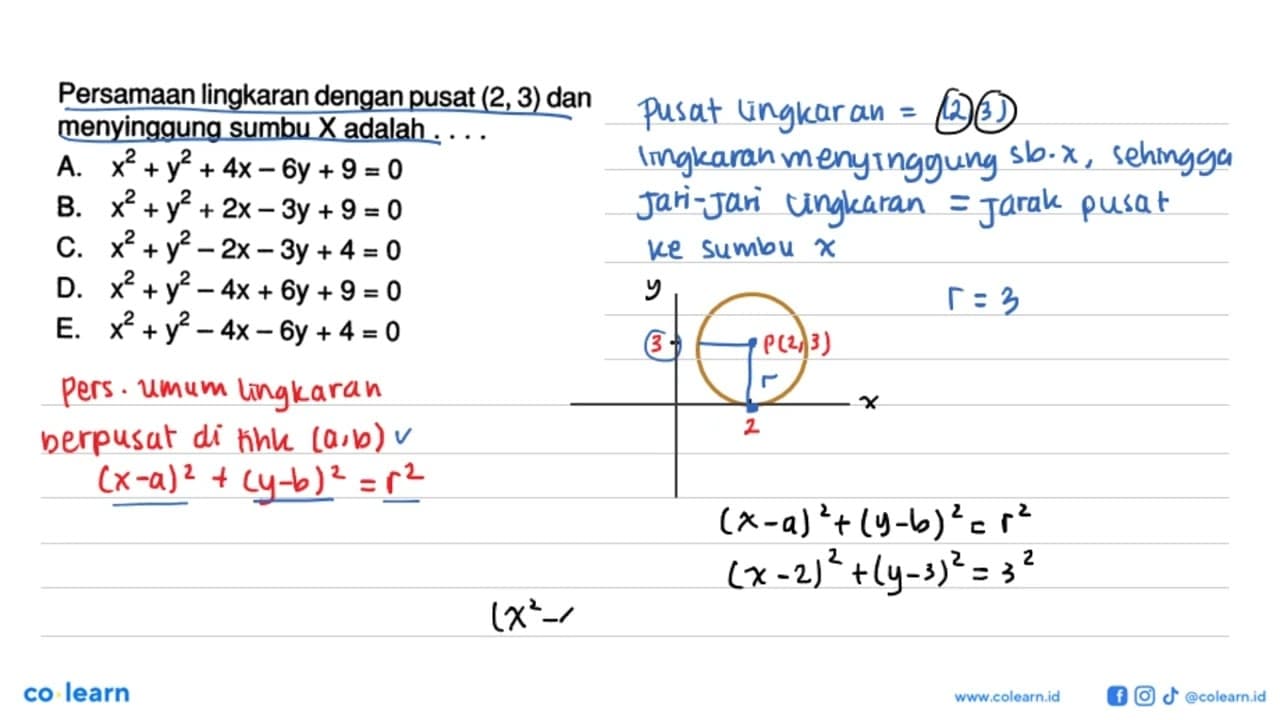 Persamaan lingkaran dengan pusat (2, 3) dan
menyinggung sumbu X adalah . . . .
A. x² + y² + 4x – 6y + 9 = 0
B. x² + y² + 2x – 3y + 9 = 0
C. x² + y² – 2x – 3y + 4 = 0
D. x² + y² – 4x + 6y + 9 = 0
E. x² + y² – 4x – 6y + 4 = 0
Pers. umum lingkaran
berpusat di titik (a,b) ✓
(x-a)² + (y-b)² = r²
Pusat lingkaran = (2,3)
lingkaran menyinggung sb.x, sehingga
Jari-Jari lingkaran = Jarak pusat
ke sumbu x
r = 3
y
3
P(2,3)
r
x
2
(x-a)² + (y-b)² = r²
(x-2)² + (y-3)² = 3²
(x² -
co learn
www.colearn.id
@colearn.id